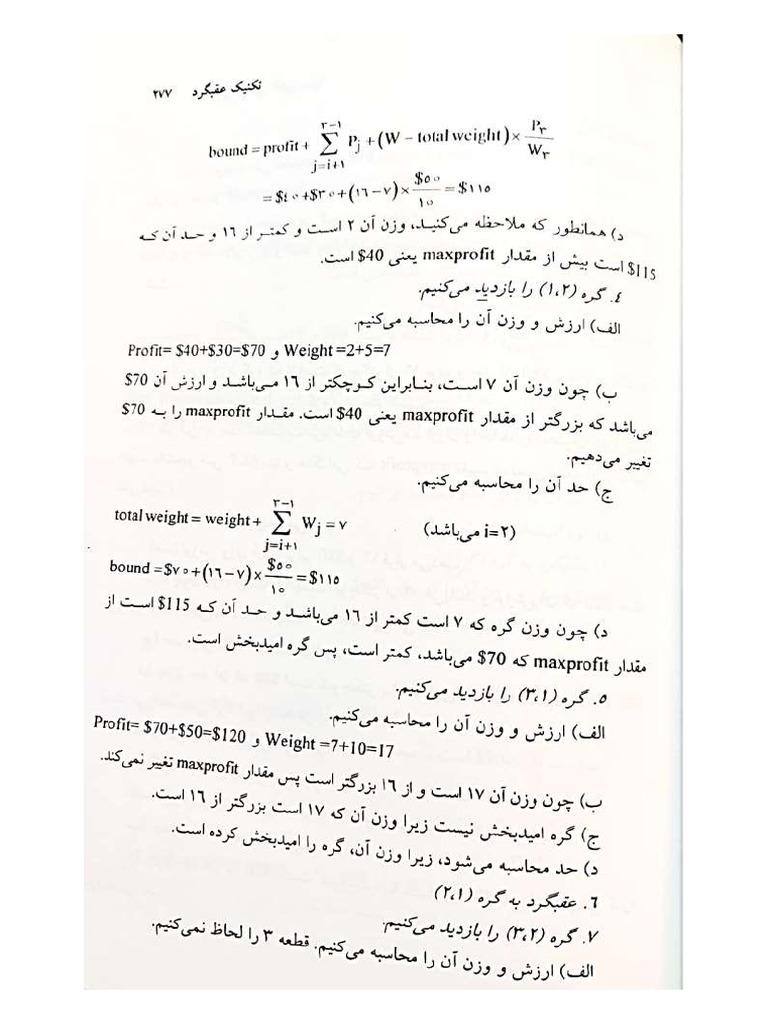 تکنیک عقبگرد ۲۷۷
bound = profit + ∑_{j=i+۱}^{۳-۱} P_j + (W - total weight) × P_۳/W_۳
= $٤۰ + $۳۰ + (۱٦ - ۷) × $٥۰/۱۰ = $۱۱٥
د) همانطور که ملاحظه می‌کنید، وزن آن ۲ است و کمتر از ۱٦ و حد آن که
$115 است بیش از مقدار maxprofit یعنی $40 است.
٤. گره (۱،۲) را بازدید می‌کنیم.
الف) ارزش و وزن آن را محاسبه می‌کنیم.
Profit= $40+$30=$70 و Weight =2+5=7
ب) چون وزن آن ۷ است، بنابراین کوچکتر از ۱٦ می‌باشد و ارزش آن $70
می‌باشد که بزرگتر از مقدار maxprofit یعنی $40 است. مقدار maxprofit را به $70
تغییر می‌دهیم.
ج) حد آن را محاسبه می‌کنیم.
total weight = weight + ∑_{j=i+۱}^{۳-۱} W_j = ۷ (i=۲ می‌باشد)
bound = $۷۰ + (۱٦ - ۷) × $٥۰/۱۰ = $۱۱٥
د) چون وزن گره که ۷ است کمتر از ۱٦ می‌باشد و حد آن که $115 است از
مقدار maxprofit که $70 می‌باشد، کمتر است، پس گره امیدبخش است.
٥. گره (۳،۱) را بازدید می‌کنیم.
الف) ارزش و وزن آن را محاسبه می‌کنیم.
Profit= $70+$50=$120 و Weight =7+10=17
ب) چون وزن آن ۱۷ است و از ۱٦ بزرگتر است پس مقدار maxprofit تغییر نمی‌کند.
ج) گره امیدبخش نیست زیرا وزن آن که ۱۷ است بزرگتر از ۱٦ است.
د) حد محاسبه می‌شود، زیرا وزن آن، گره را امیدبخش کرده است.
٦. عقبگرد به گره (۲،۱)
۷. گره (۳،۲) را بازدید می‌کنیم.
الف) ارزش و وزن آن را محاسبه می‌کنیم. قطعه ۳ را لحاظ نمی‌کنیم.